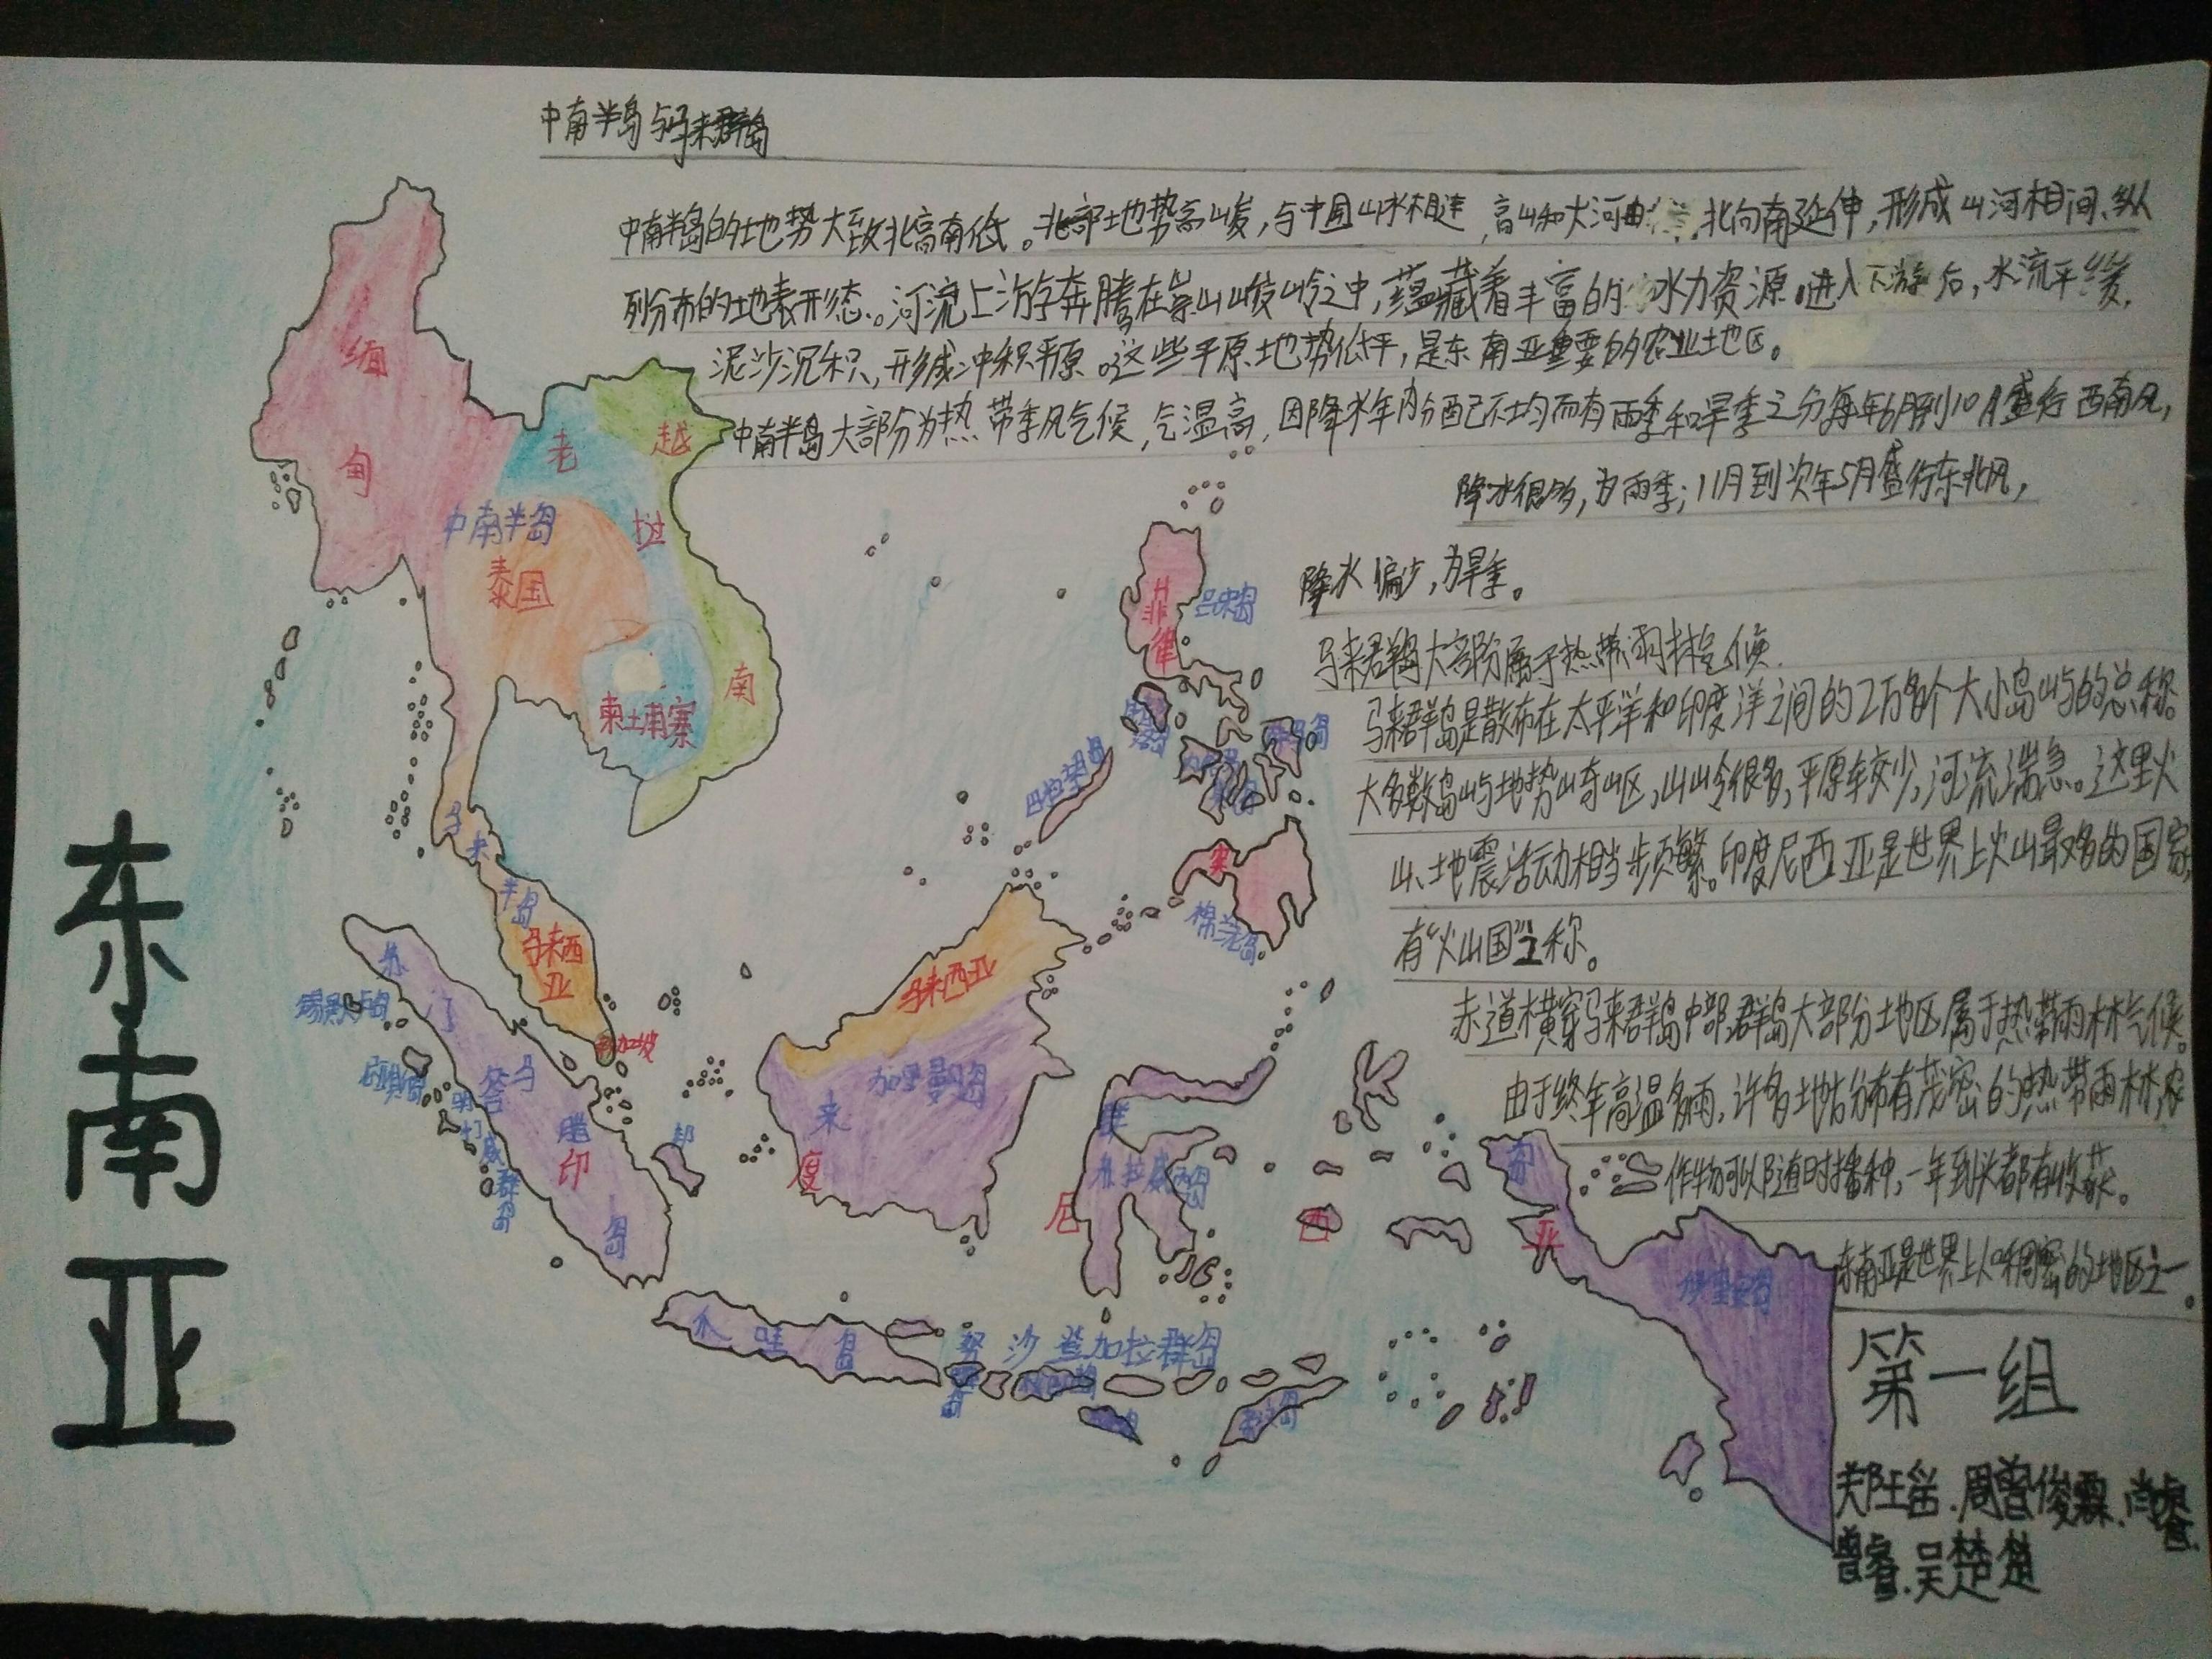 中南半岛与马来群岛
中南半岛的地势大致北高南低。北部地势高峻,与中国山水相连,高山和大河由 北向南延伸,形成山河相间、纵
列分布的地表形态。河流上游奔腾在崇山峻岭之中,蕴藏着丰富的水力资源。进入下游后,水流平缓,
泥沙沉积,形成冲积平原。这些平原地势低平,是东南亚重要的农业地区。
中南半岛大部分为热带季风气候,气温高,因降水年内分配不均而有雨季和旱季之分每年6月到10月盛行西南风,
降水很多,为雨季;11月到次年5月盛行东北风,
降水偏少,为旱季。
马来群岛大部份属于热带雨林气候.
马来群岛是散布在太平洋和印度洋之间的2万多个大小岛屿的总称。
大多数岛屿地势崎岖,山岭很多,平原较少,河流湍急。这里火
山、地震活动相当频繁。印度尼西亚是世界上火山最多的国家,
有“火山国”之称。
赤道横穿马来群岛中部,群岛大部分地区属于热带雨林气候。
由于终年高温多雨,许多地方分布有茂密的热带雨林,农
作物可以随时播种,一年到头都有收获。
东南亚是世界上人口稠密的地区之一。
第一组
周曾俊霖.
曾睿.吴楚楚
东南亚
缅甸
老挝
越南
中南半岛
泰国
柬土甫寨
马来半岛
马来西亚
新加坡
菲律宾
吕宋岛
巴拉望岛
棉兰岛
马来西亚
加里曼岛
苏门答腊岛
马来群岛
印度尼西亚
明打威群岛
邦
苏拉威西岛
爪哇岛
努沙登加拉群岛
伊里安岛